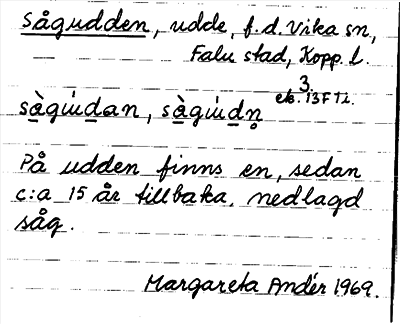 Sågudden, udde, f.d. Vika sn,
Falu stad, Kopp. l.
3.
ek. 13F 7i.
sàgúdan, sàgúdn̥
På udden finns en, sedan
c:a 15 år tillbaka, nedlagd
såg.
Margareta Andér 1969.